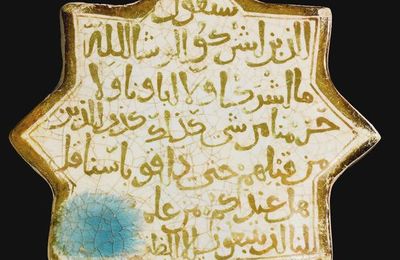 سيقول
الذين اشركوا لو شا الله
ما اشركنا ولا اباونا ولا
حرمنا من شى كذلك كذب الذين
من قبلهم حتى ذاقوا باسنا قل
هل عندكم من علم
لنا ان تتبعون الا الظن